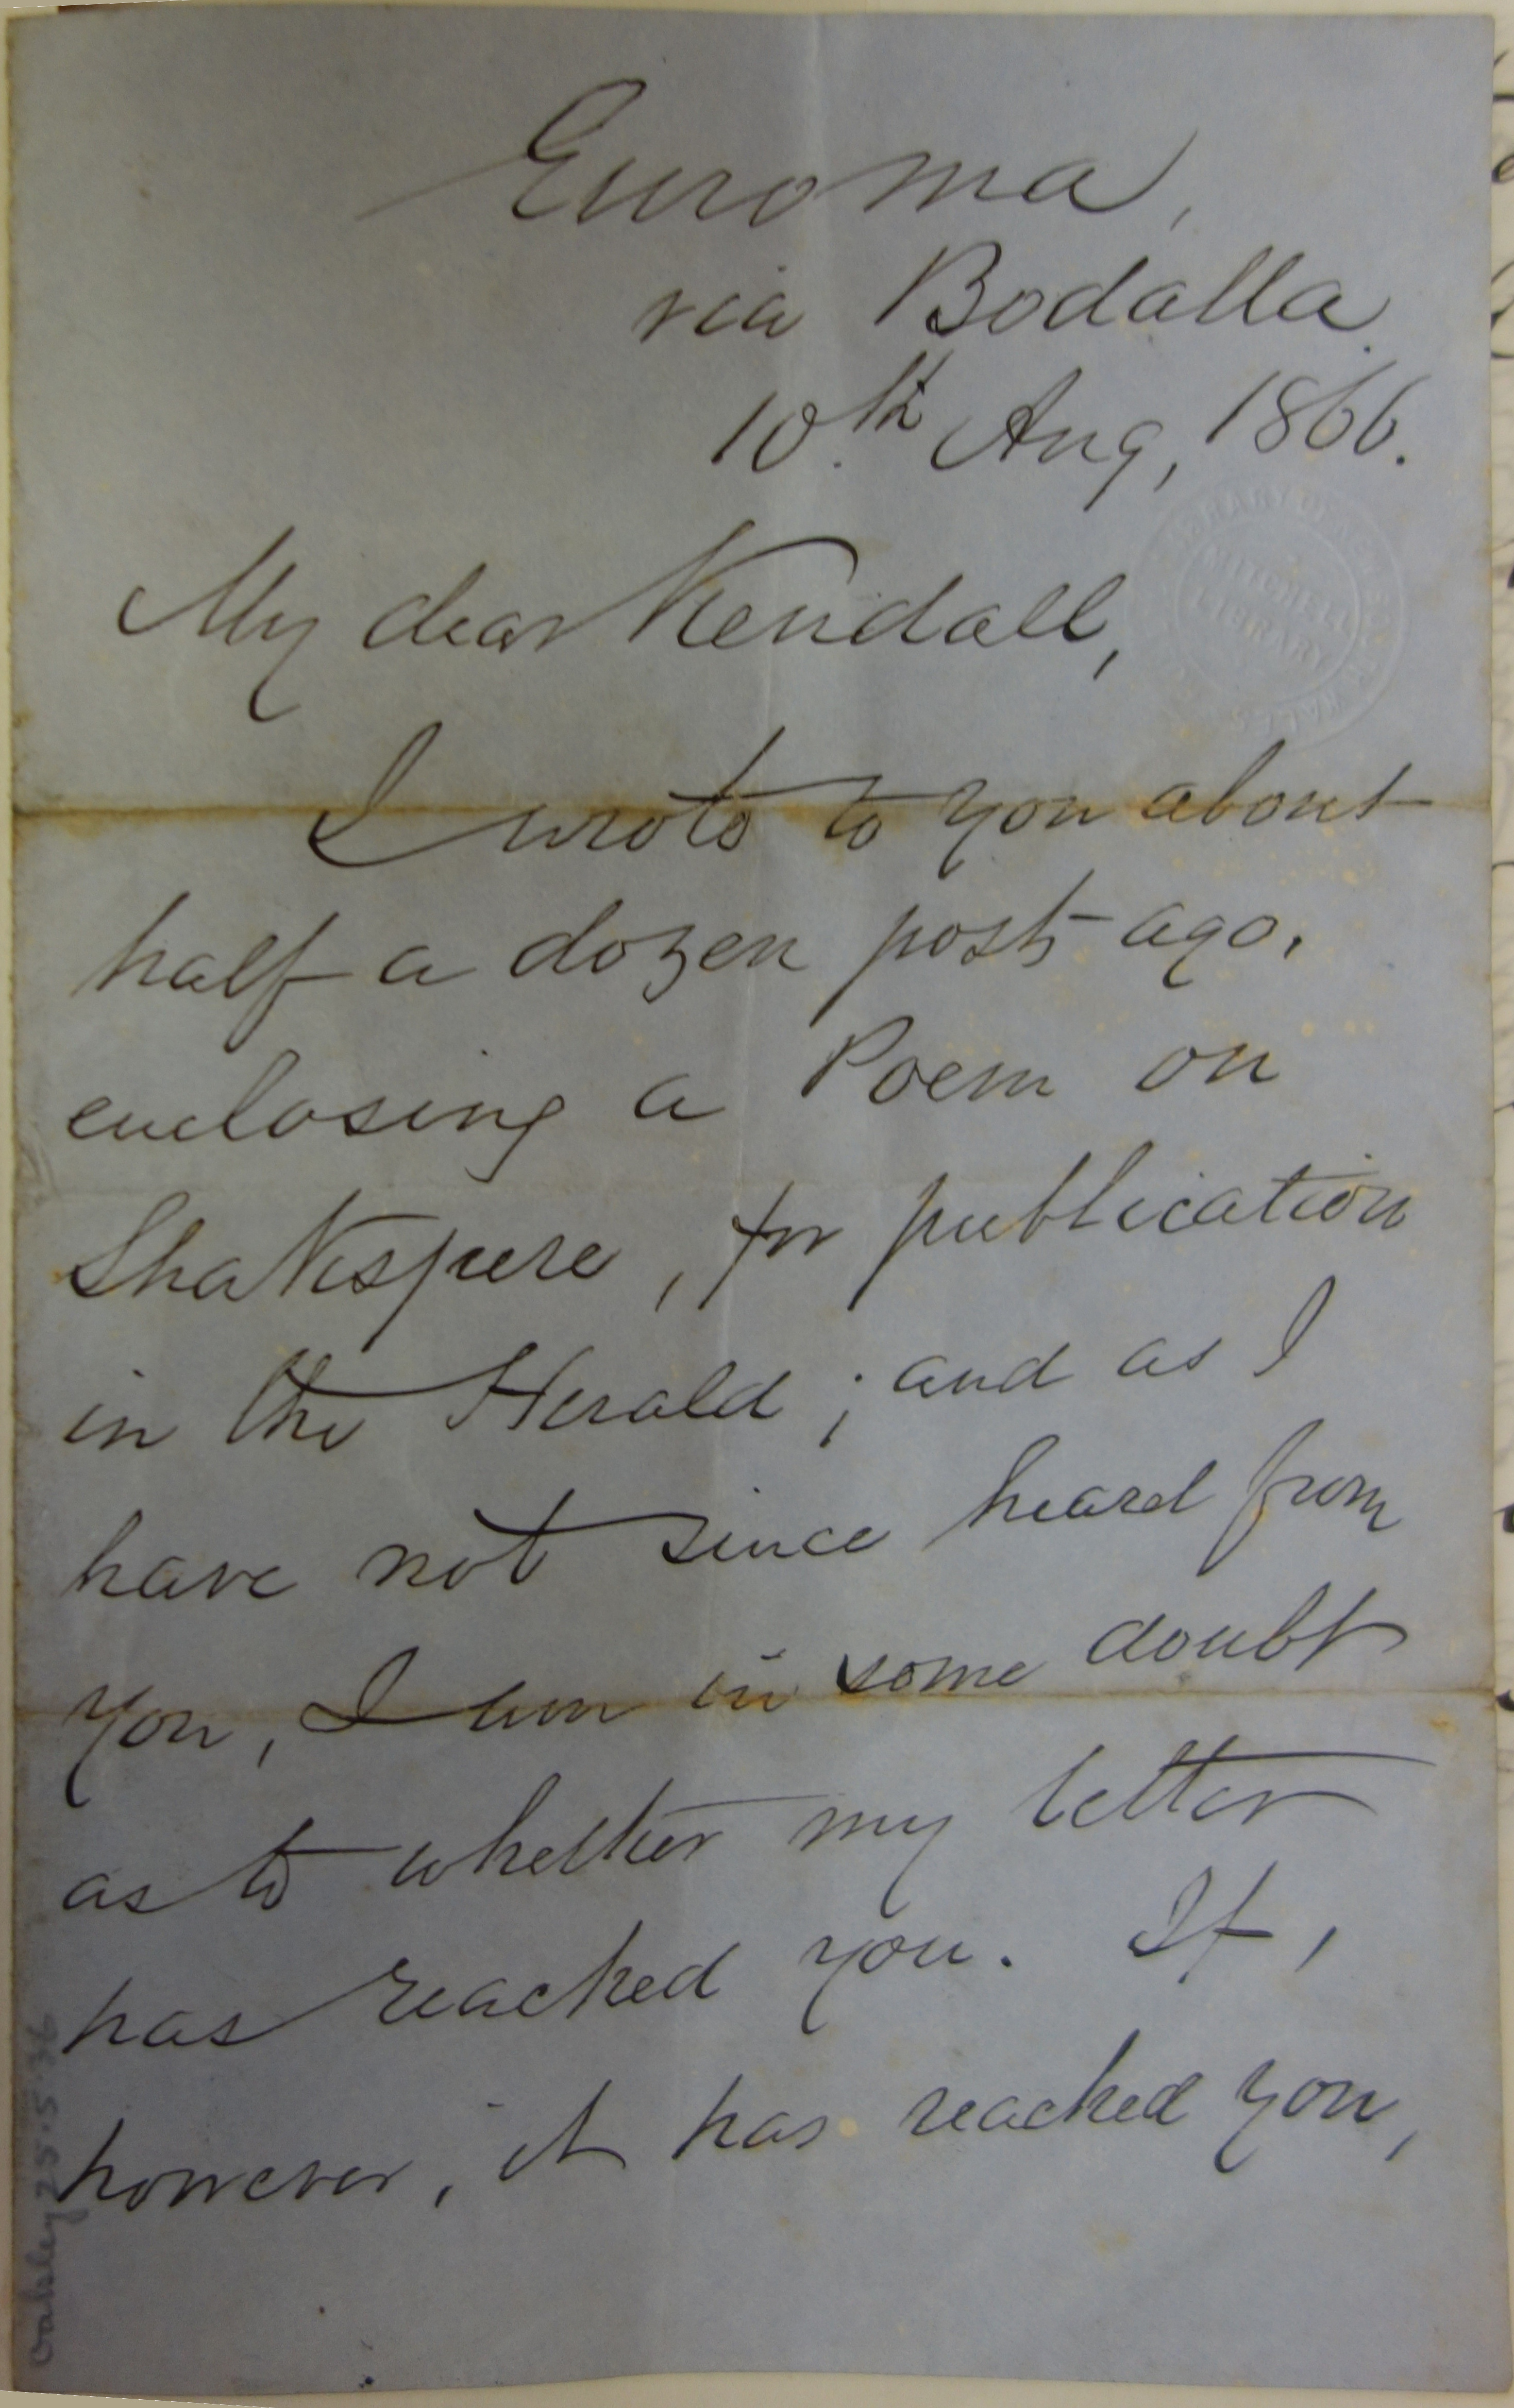 Euroma,
via Bodalla.
10.th Aug, 1866.
My dear Kendall,
I wrote to you about
half a dozen posts ago,
enclosing a Poem on
Shakspere, for publication
in the Herald; and as I
have not since heard from
you, I am in some doubt
as to whether my letter
has reached you. If,
however, it has reached you,
MITCHELL
LIBRARY
Oakley 25.5.36